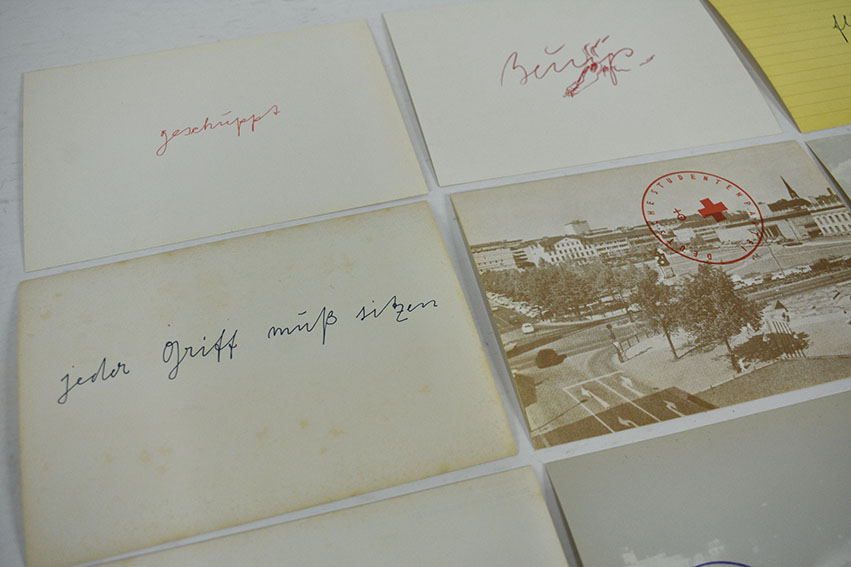 geschuppt
jeder Griff muß sitzen
DEUTSCHE STUDENTENPARTEI